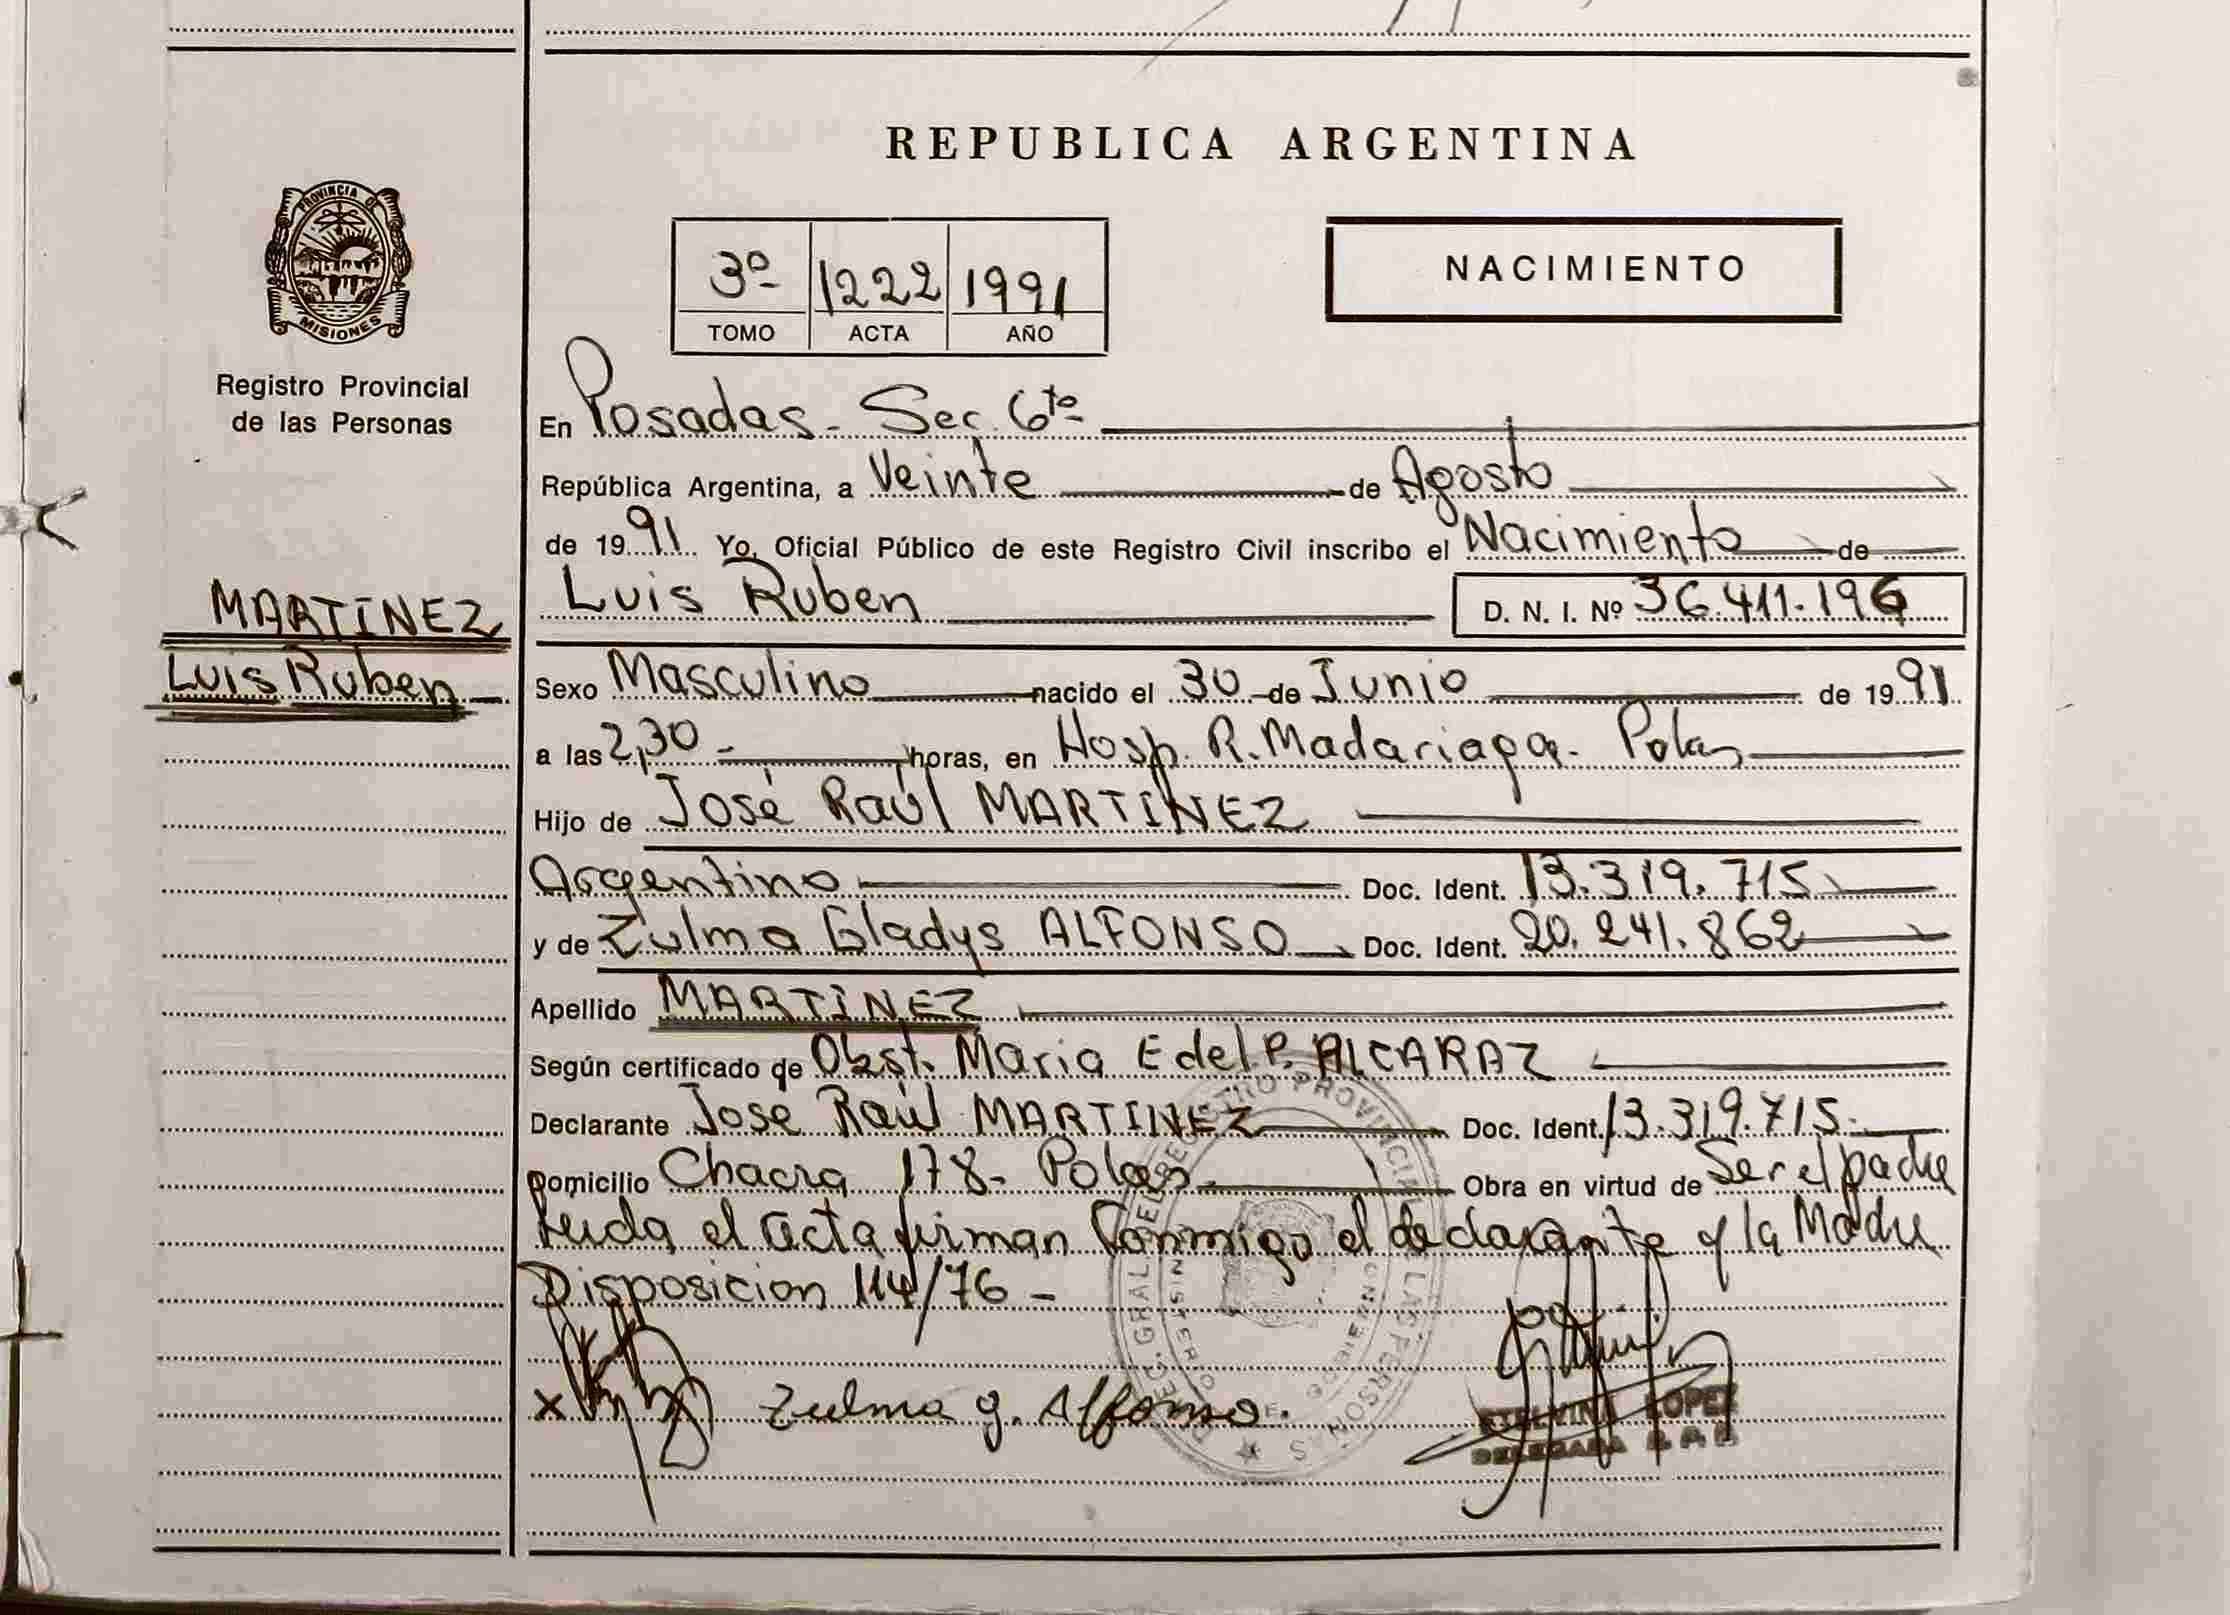 REPUBLICA ARGENTINA
PROVINCIA DE
MISIONES
Registro Provincial
de las Personas
3º 1222 1991
TOMO ACTA AÑO
NACIMIENTO
En Posadas - Sec. 6ta
República Argentina, a Veinte de Agosto
de 1991 Yo, Oficial Público de este Registro Civil inscribo el Nacimiento de
MARTINEZ
Luis Ruben
Luis Ruben D. N. I. Nº 36.411.196
Sexo Masculino nacido el 30 de Junio de 1991
a las 2,30 - horas, en Hosp. R. Madariaga - Pdas
Hijo de José Raúl MARTINEZ
Argentino Doc. Ident. 13.319.715
y de Zulma Gladys ALFONSO Doc. Ident. 20.241.862
Apellido MARTINEZ
Según certificado de Obst. Maria Edel P. ALCARAZ
Declarante José Raúl MARTINEZ Doc. Ident. 13.319.715.
Domicilio Chacra 178 - Pdas. Obra en virtud de Ser el padre
Leida el acta firman Conmigo el declarante y la Madre
Disposicion 114/76 -
x Zulma G. Alfonso.
LOPEZ
DELEGADA
REGISTRO PROVINCIAL DE LAS PERSONAS